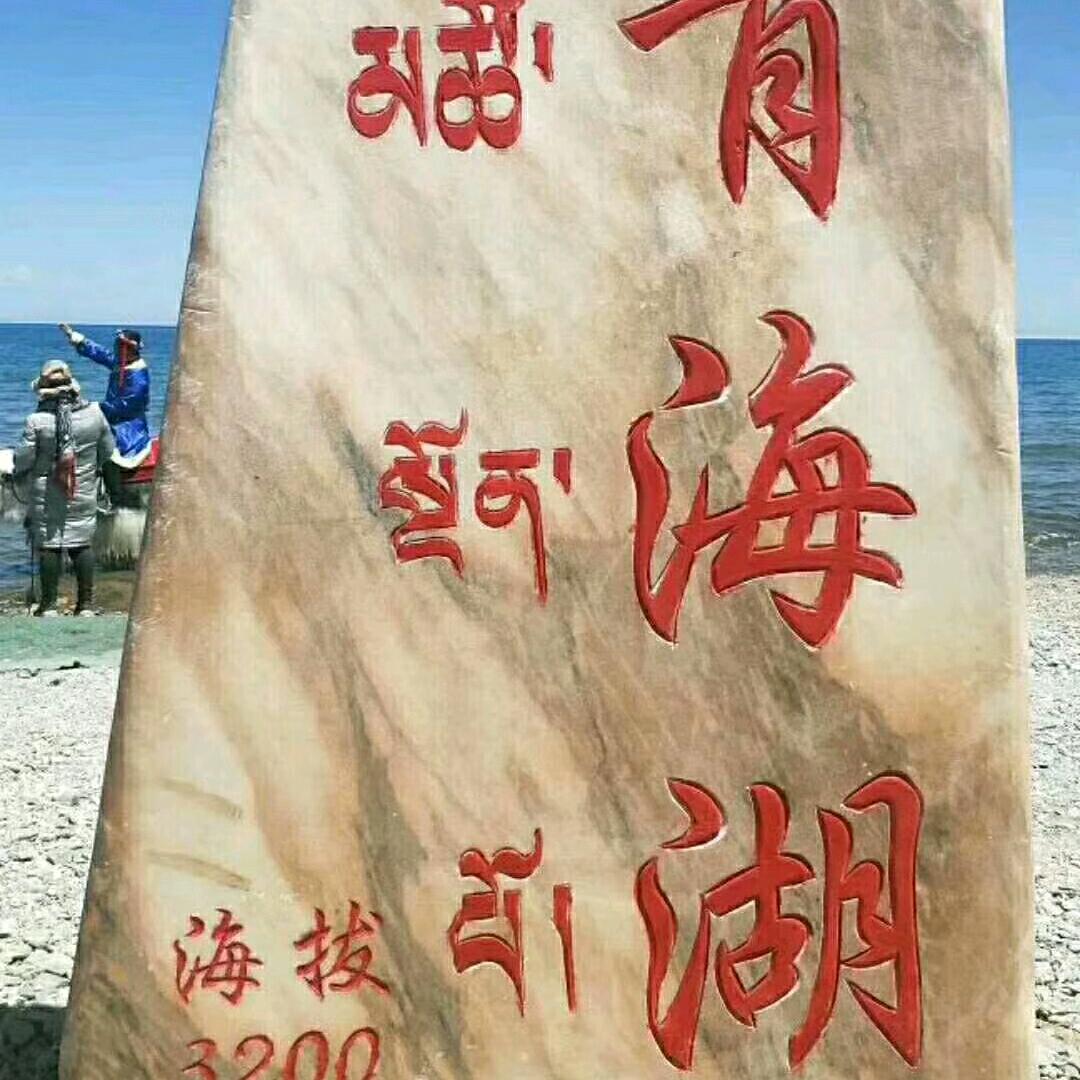 青海湖
མཚོ་
སྔོན་
པོ།
海拔
3200